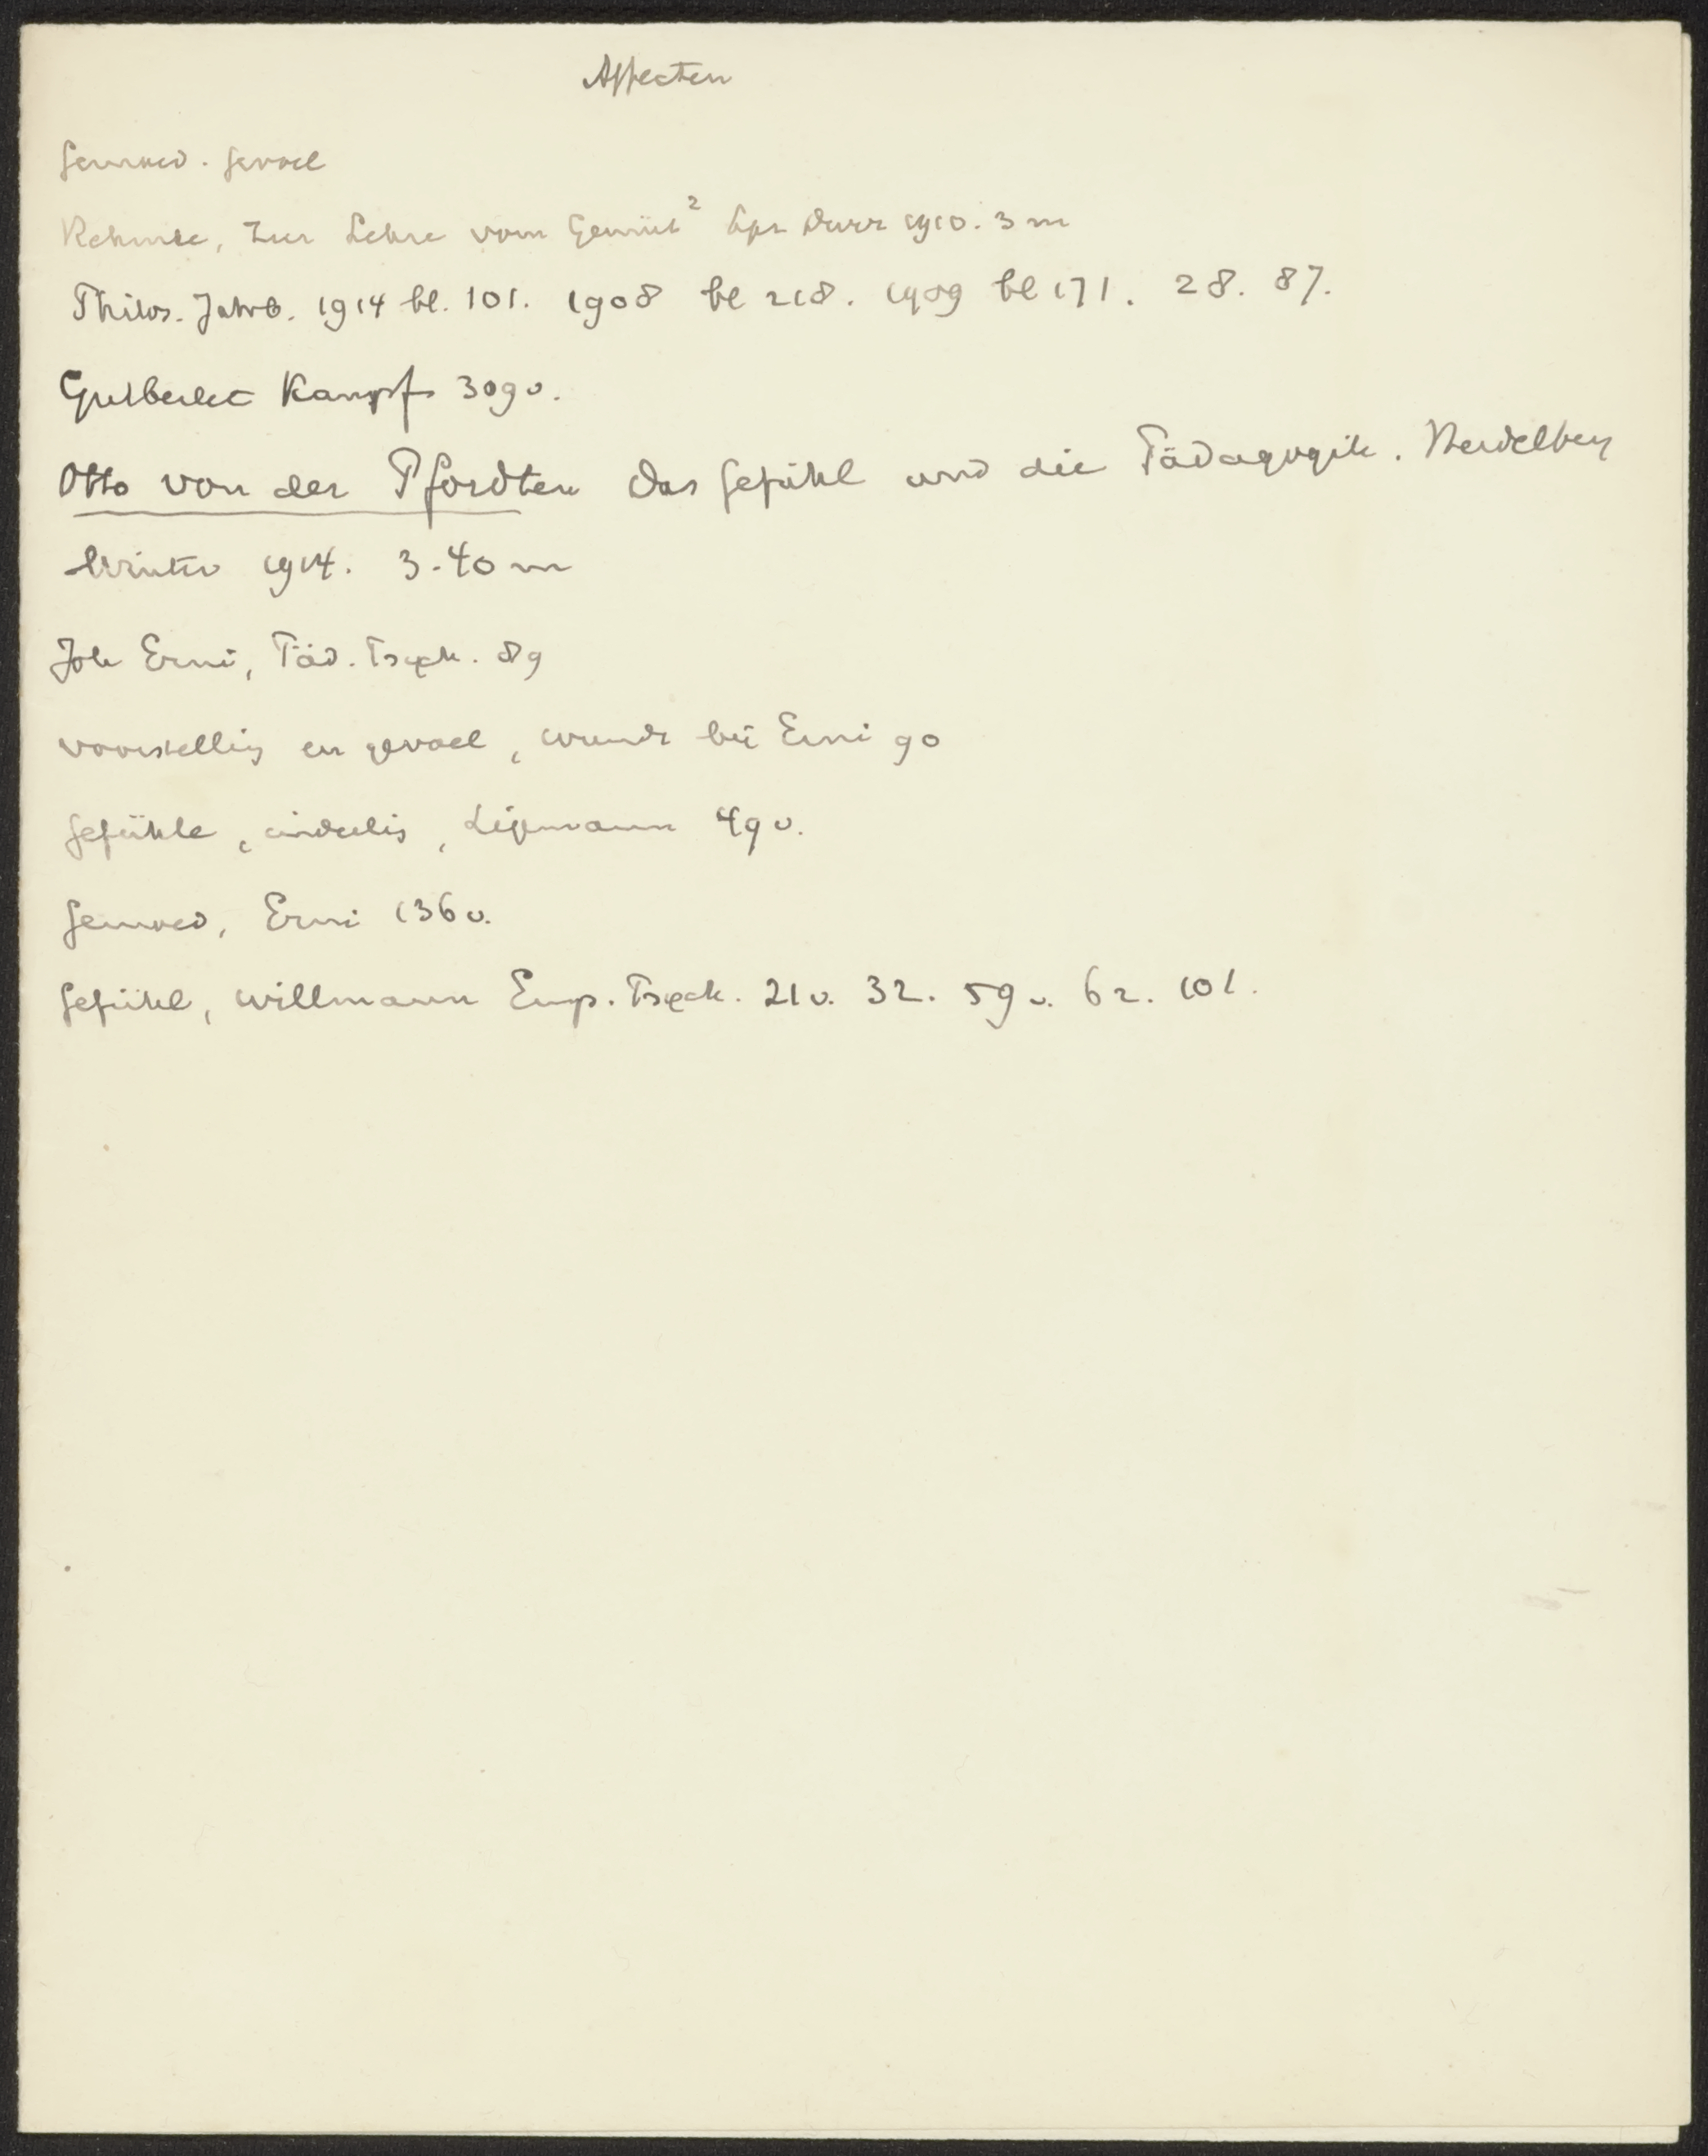 Affecten
Gemoed. Gevoel
Rehmke, Zur Lehre vom Gemüt² Lpz Durr 1910. 3 m
Philos. Jahrb. 1914 bl. 101. 1908 bl 218. 1909 bl 171. 28. 87.
Gutberlet Kampf 309 v.
Otto von der Pfordten Das Gefühl und die Pädagogik. Heidelberg
Winter 1914. 3.40 m
Joh Erni, Päd. Psych. 89
voorstellig en gevoel, Wundt bij Erni 90
Gefühle, Lipmann 49 v.
Gemoed, Erni 136 v.
Gefühl, Willmann Emp. Psych. 21 v. 32. 59 v. 62. 101.